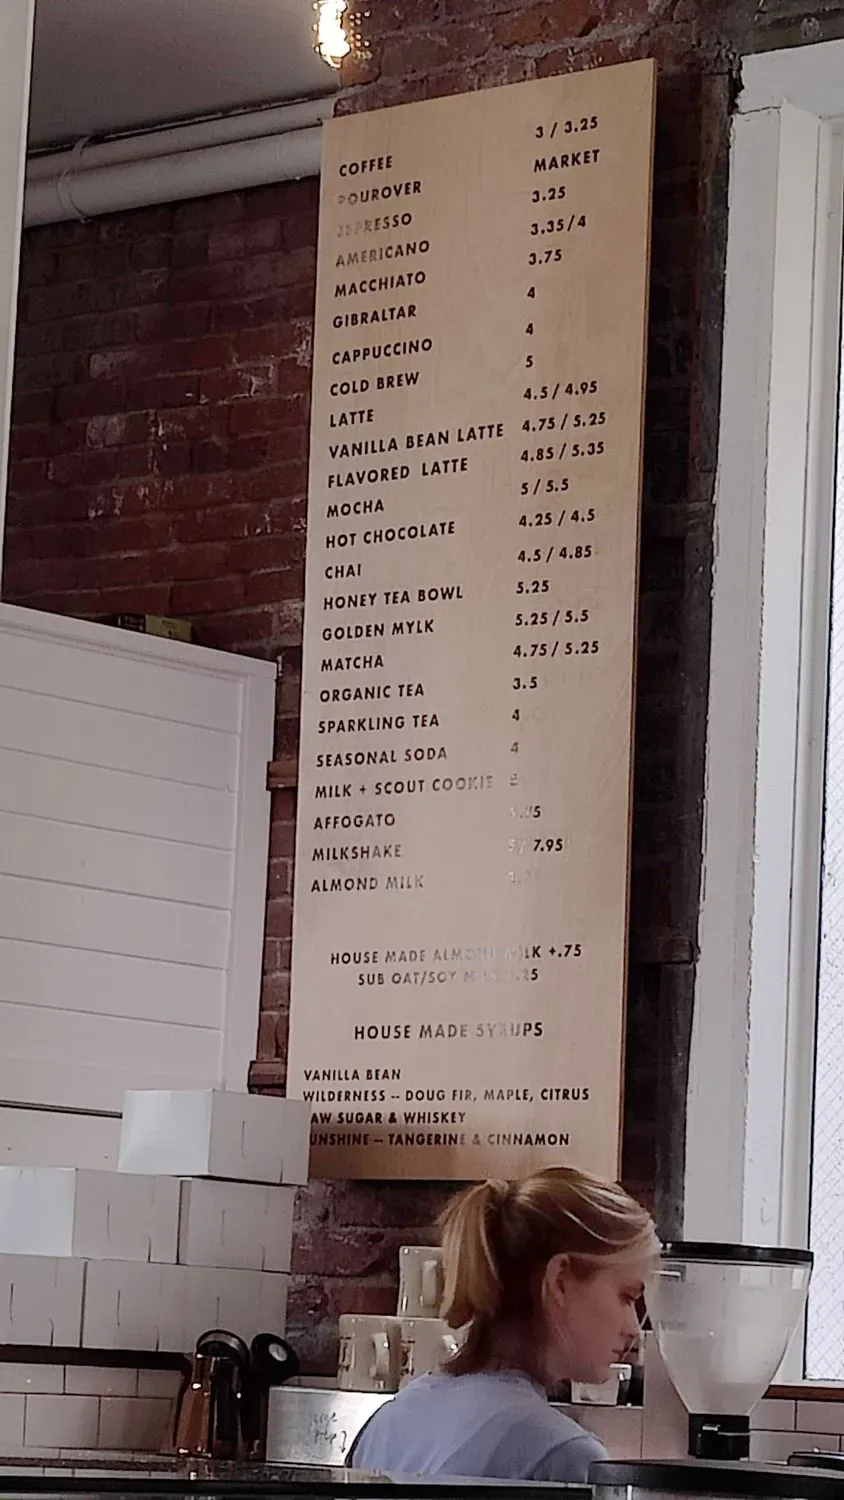 COFFEE 3 / 3.25
POUROVER MARKET
ESPRESSO 3.25
AMERICANO 3.35/4
MACCHIATO 3.75
GIBRALTAR 4
CAPPUCCINO 4
COLD BREW 5
LATTE 4.5 / 4.95
VANILLA BEAN LATTE 4.75 / 5.25
FLAVORED LATTE 4.85 / 5.35
MOCHA 5 / 5.5
HOT CHOCOLATE 4.25 / 4.5
CHAI 4.5 / 4.85
HONEY TEA BOWL 5.25
GOLDEN MYLK 5.25 / 5.5
MATCHA 4.75 / 5.25
ORGANIC TEA 3.5
SPARKLING TEA 4
SEASONAL SODA 4
MILK + SCOUT COOKIE
AFFOGATO
MILKSHAKE 5 / 7.95
ALMOND MILK
HOUSE MADE ALMOND MILK +.75
SUB OAT/SOY MILK
HOUSE MADE SYRUPS
VANILLA BEAN
WILDERNESS -- DOUG FIR, MAPLE, CITRUS
AW SUGAR & WHISKEY
UNSHINE -- TANGERINE & CINNAMON